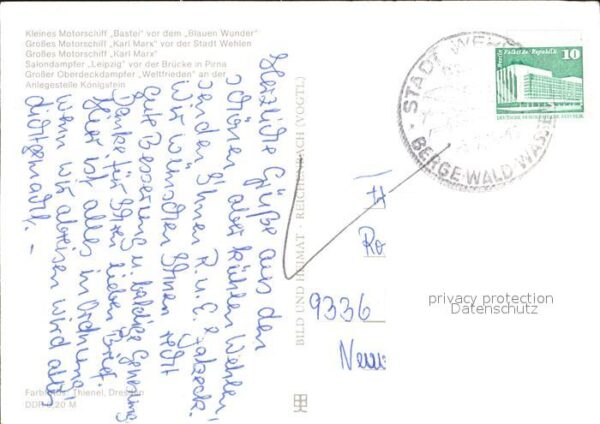 Kleines Motorschiff „Bastei" vor dem „Blauen Wunder"
Großes Motorschiff „Karl Marx" vor der Stadt Wehlen
Großes Motorschiff „Karl Marx"
Salondampfer „Leipzig" vor der Brücke in Pirna
Großer Oberdeckdampfer „Weltfrieden" an der
Anlegestelle Königstein
Herzliche Grüße aus dem
schönen, aber kühlen Wehlen,
senden Ihnen R. u. E.
Wir wünschen Ihnen recht
gute Besserung u. baldige Genesung
Danke für Ihren lieben Brief.
Hier ist alles in Ordnung,
wenn wir abreisen wird alles
dichtgemacht. –
Farbfotos: Thienel, Dresden
DDR 0,20 M
BILD UND HEIMAT · REICHENBACH (VOGTL)
STADT WEH
BERGE·WALD·WASSE
Berlin, Palast der Republik
10
DEUTSCHE DEMOKRATISCHE REPUBLIK
Ro
9336
privacy protection
Datenschutz